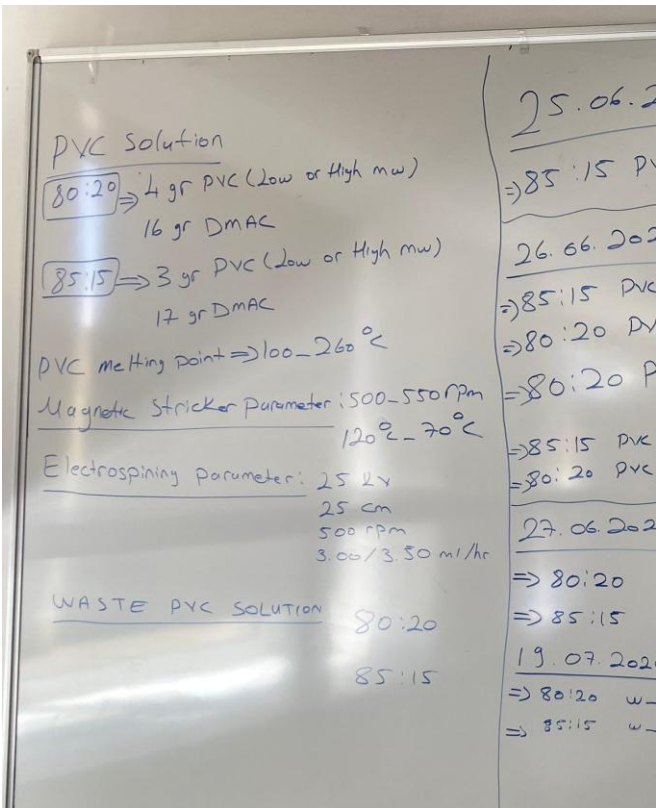 PVC Solution
80:20 => 4 gr PVC (Low or High mw)
16 gr DMAC
85:15 => 3 gr PVC (Low or High mw)
17 gr DMAC
PVC melting point => 100-260°C
Magnetic Stricker Parameter: 500-550 rpm
120°C - 70°C
Electrospining parameter: 25 kv
25 cm
500 rpm
3.00/3.50 ml/hr
WASTE PVC SOLUTION 80:20
85:15
25.06.2
=> 85:15 PV
26.06.202
=> 85:15 PVC
=> 80:20 PV
=> 80:20 P
=> 85:15 PVC
=> 80:20 PVC
27.06.202
=> 80:20
=> 85:15
19.07.202
=> 80:20 w-
=> 85:15 w-